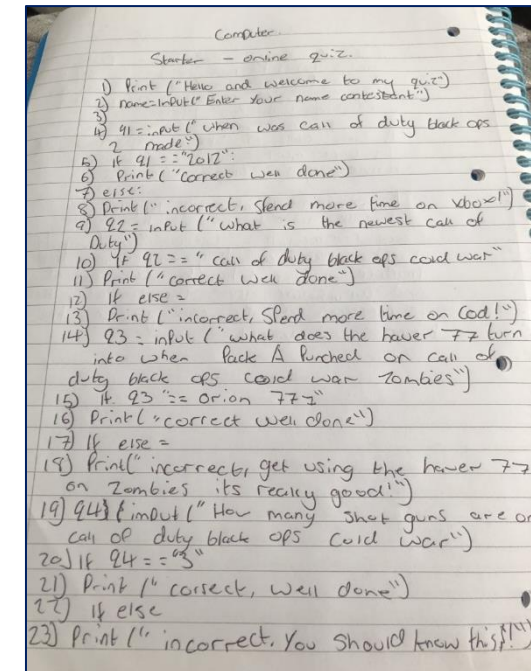 Computer.
Starter - online quiz.
1) Print ("Hello and welcome to my quiz")
2) name=InPut("Enter your name contestant")
3)
4) q1 = inPut (" when was call of duty black ops
2 made")
5) if q1 = ="2012":
6) Print ("correct well done")
7) else:
8) Print (" incorrect, Spend more time on xbox!")
9) q2 = inPut ("what is the newest call of
Duty")
10) If q2 == " call of duty black ops cold war"
11) Print ("correct well done")
12) If else =
13) Print ("incorrect, Spend more time on Cod!")
14) q3 = inPut ("what does the hauer 77 turn
into when Pack A Punched on call of
duty black ops cold war zombies")
15) if q3 "== Orion 777"
16) Print ("correct well done")
17) If else =
18) Print(" incorrect, get using the hauer 77
on Zombies its really good!")
19) q4} {input (" How many shot guns are on
call of duty black ops cold war")
20) If q4 = ="3"
21) Print (" correct, well done")
22) if else
23) Print (" incorrect. You should know this!!")